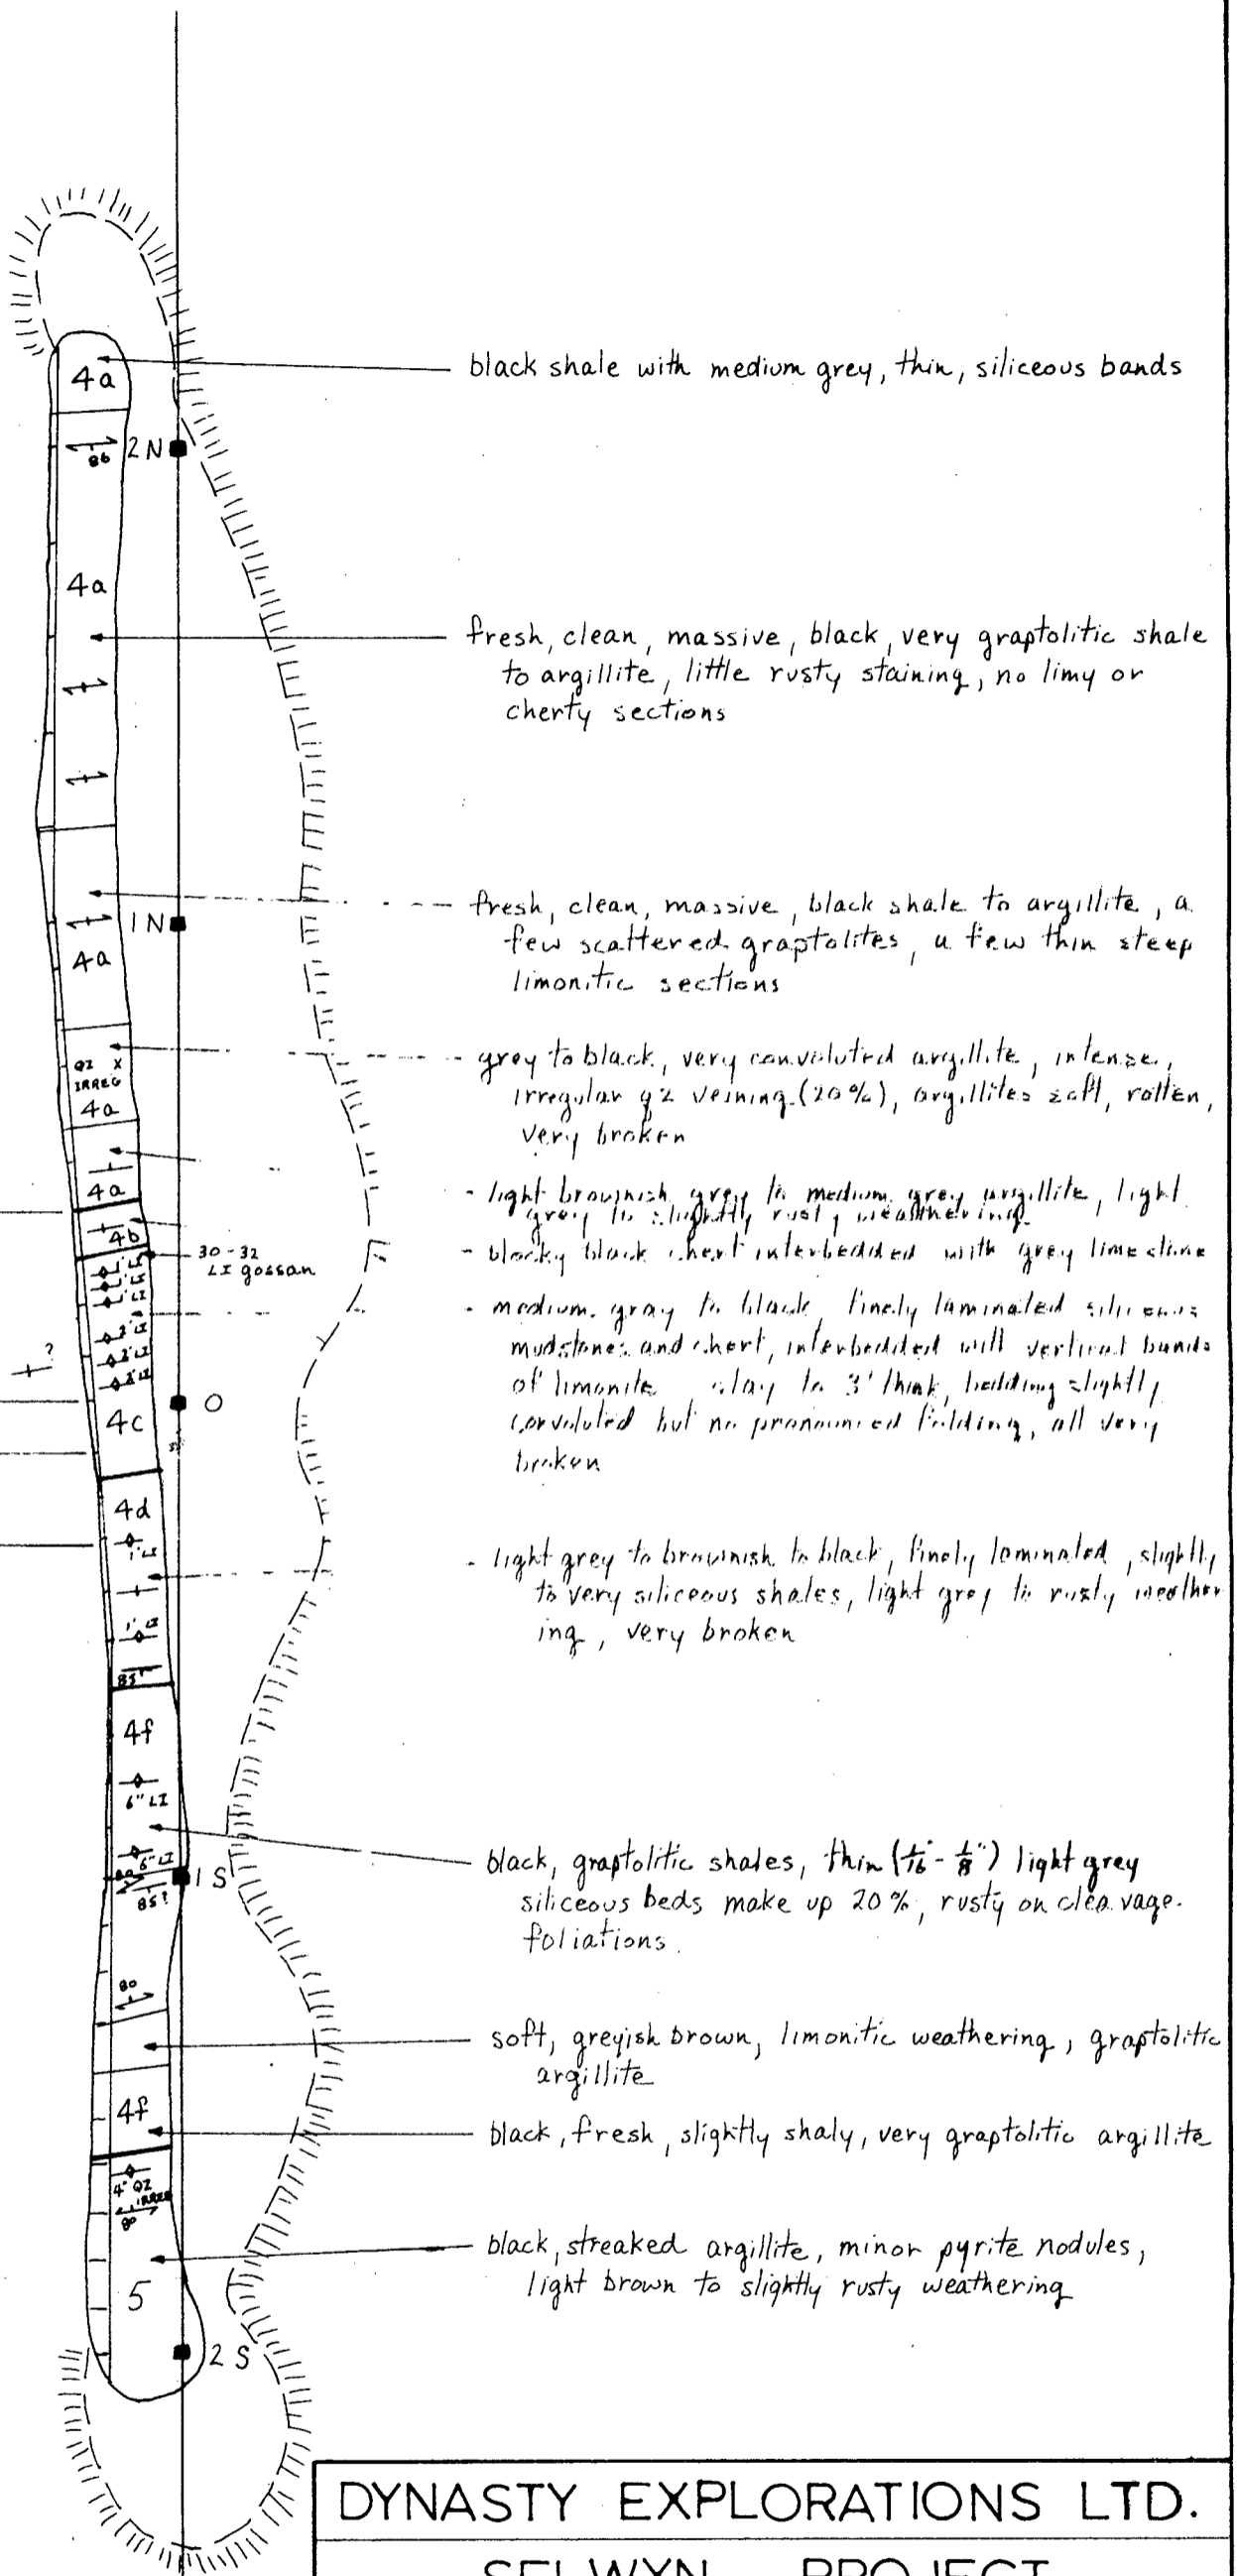 4a
black shale with medium grey, thin, siliceous bands
86
2N
4a
fresh, clean, massive, black, very graptolitic shale
to argillite, little rusty staining, no limy or
cherty sections
fresh, clean, massive, black shale to argillite, a
few scattered graptolites, a few thin steep
limonitic sections
1N
4a
grey to black, very convoluted argillite, intense,
irregular qz veining (20%), argillites soft, rotten,
very broken
QZ X
IRREG
4a
4a
- light brownish grey to medium grey argillite, light
grey to slightly rusty weathering
4b
- blocky black chert interbedded with grey limestone
30-32
LI gossan
- medium gray to black, finely laminated siliceous
mudstones and chert, interbedded with vertical bands
of limonite clay to 3' thick, bedding slightly
convoluted but no pronounced folding, all very
broken
?
O
4c
4d
1' LI
- light grey to brownish to black, finely laminated, slightly
to very siliceous shales, light grey to rusty weather
ing, very broken
1' LI
85
4f
6" LI
6" LI
black, graptolitic shales, thin (1/16" - 1/8") light grey
siliceous beds make up 20%, rusty on cleavage
foliations.
1S
85?
80
soft, greyish brown, limonitic weathering, graptolitic
argillite
4f
black, fresh, slightly shaly, very graptolitic argillite
4" QZ
IRREG
80
black, streaked argillite, minor pyrite nodules,
light brown to slightly rusty weathering
5
2S
DYNASTY EXPLORATIONS LTD.
SELWYN PROJECT